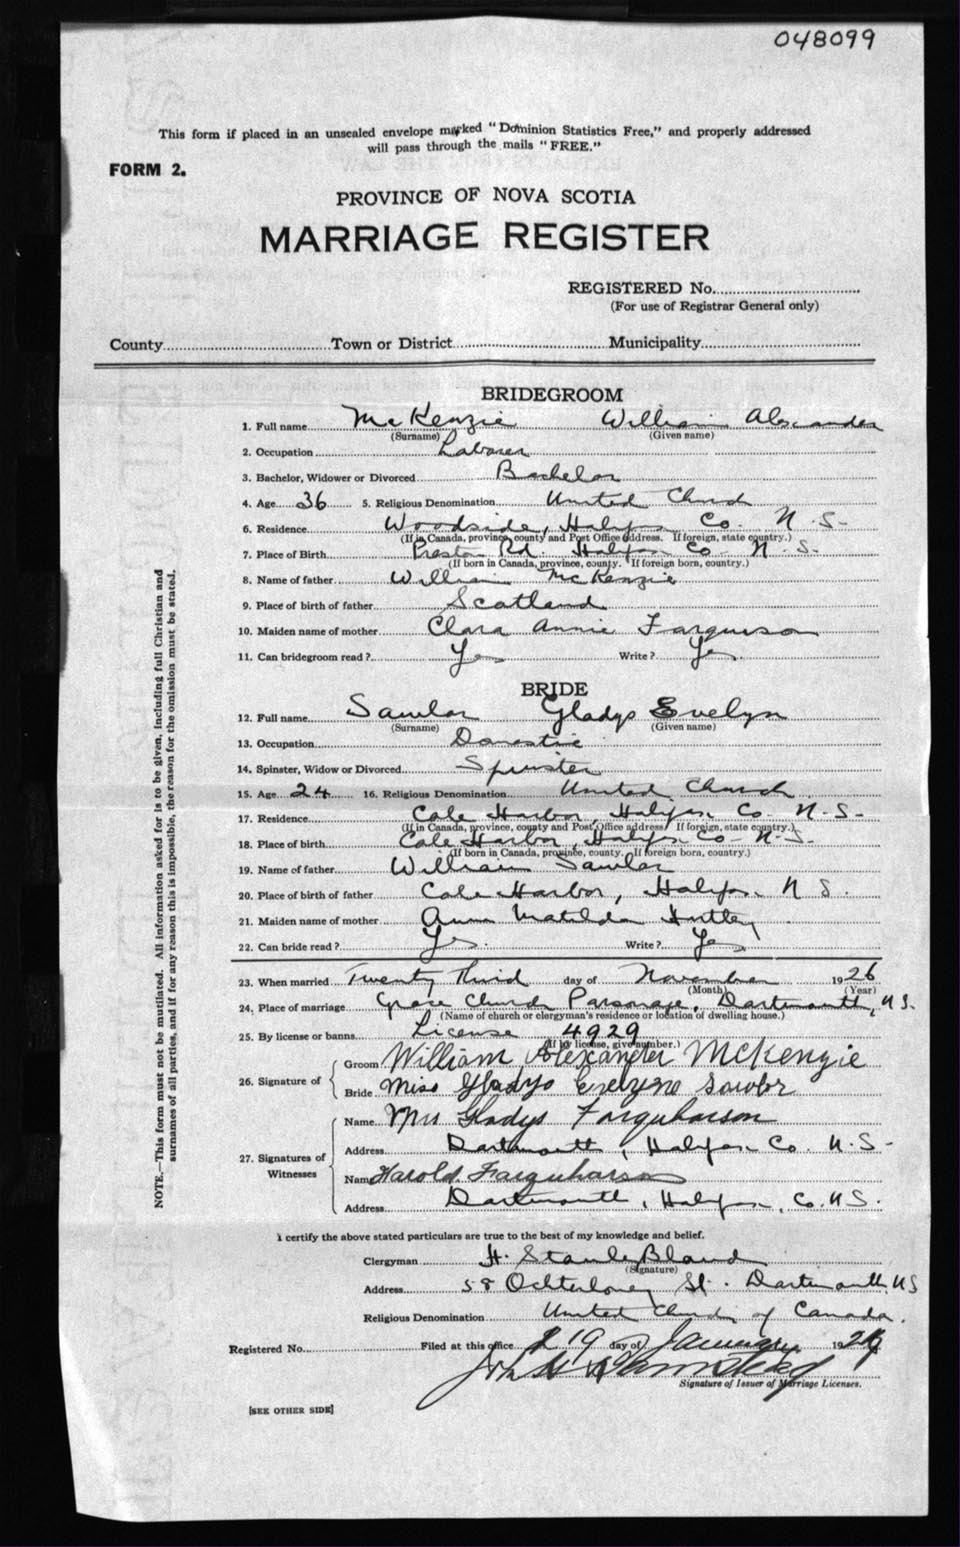 048099
This form if placed in an unsealed envelope marked "Dominion Statistics Free," and properly addressed
will pass through the mails "FREE."
FORM 2.
PROVINCE OF NOVA SCOTIA
MARRIAGE REGISTER
REGISTERED No.
(For use of Registrar General only)
County Town or District Municipality
BRIDEGROOM
1. Full name McKenzie William Alexander
(Surname) (Given name)
2. Occupation Laborer
3. Bachelor, Widower or Divorced Bachelor
4. Age 36 5. Religious Denomination United Church
6. Residence Woodside, Halifax Co. N.S.
(If in Canada, province, county and Post Office address. If foreign, state country.)
7. Place of Birth Preston Rd. Halifax Co. N.S.
(If born in Canada, province, county. If foreign born, country.)
8. Name of father William McKenzie
9. Place of birth of father Scotland
10. Maiden name of mother Clara Annie Farquson
11. Can bridegroom read? Yes Write? Yes
BRIDE
12. Full name Sawlor Gladys Evelyn
(Surname) (Given name)
13. Occupation Domestic
14. Spinster, Widow or Divorced Spinster
15. Age 24 16. Religious Denomination United Church
17. Residence Cole Harbor, Halifax Co. N.S.
(If in Canada, province, county and Post Office address. If foreign, state country.)
18. Place of birth Cole Harbor, Halifax Co. N.S.
(If born in Canada, province, county. If foreign born, country.)
19. Name of father William Sawlor
20. Place of birth of father Cole Harbor, Halifax N S.
21. Maiden name of mother Anna Matilda Huttey
22. Can bride read? Yes. Write? Yes
23. When married Twenty Third day of November 1926
(Month) (Year)
24. Place of marriage Grace Church Parsonage, Dartmouth, N.S.
(Name of church or clergyman's residence or location of dwelling house.)
25. By license or banns License 4929
(If by license, give number.)
26. Signature of Groom William Alexander McKenzie
Bride Miss Gladys Evelyne Sawlor
27. Signatures of Witnesses
Name Mrs Gladys Farquharson
Address Dartmouth, Halifax Co. N.S.
Name Harold Farquharson
Address Dartmouth, Halifax, Co. N.S.
I certify the above stated particulars are true to the best of my knowledge and belief.
Clergyman H. Stanley Bland
(Signature)
Address 58 Ochterloney St. Dartmouth, N S
Religious Denomination United Church of Canada.
Registered No. Filed at this office 19 day of January 192
Signature of Issuer of Marriage Licenses.
[SEE OTHER SIDE]
NOTE.—This form must not be mutilated. All information asked for is to be given, including full Christian and
surnames of all parties, and if for any reason this is impossible, the reason for the omission must be stated.